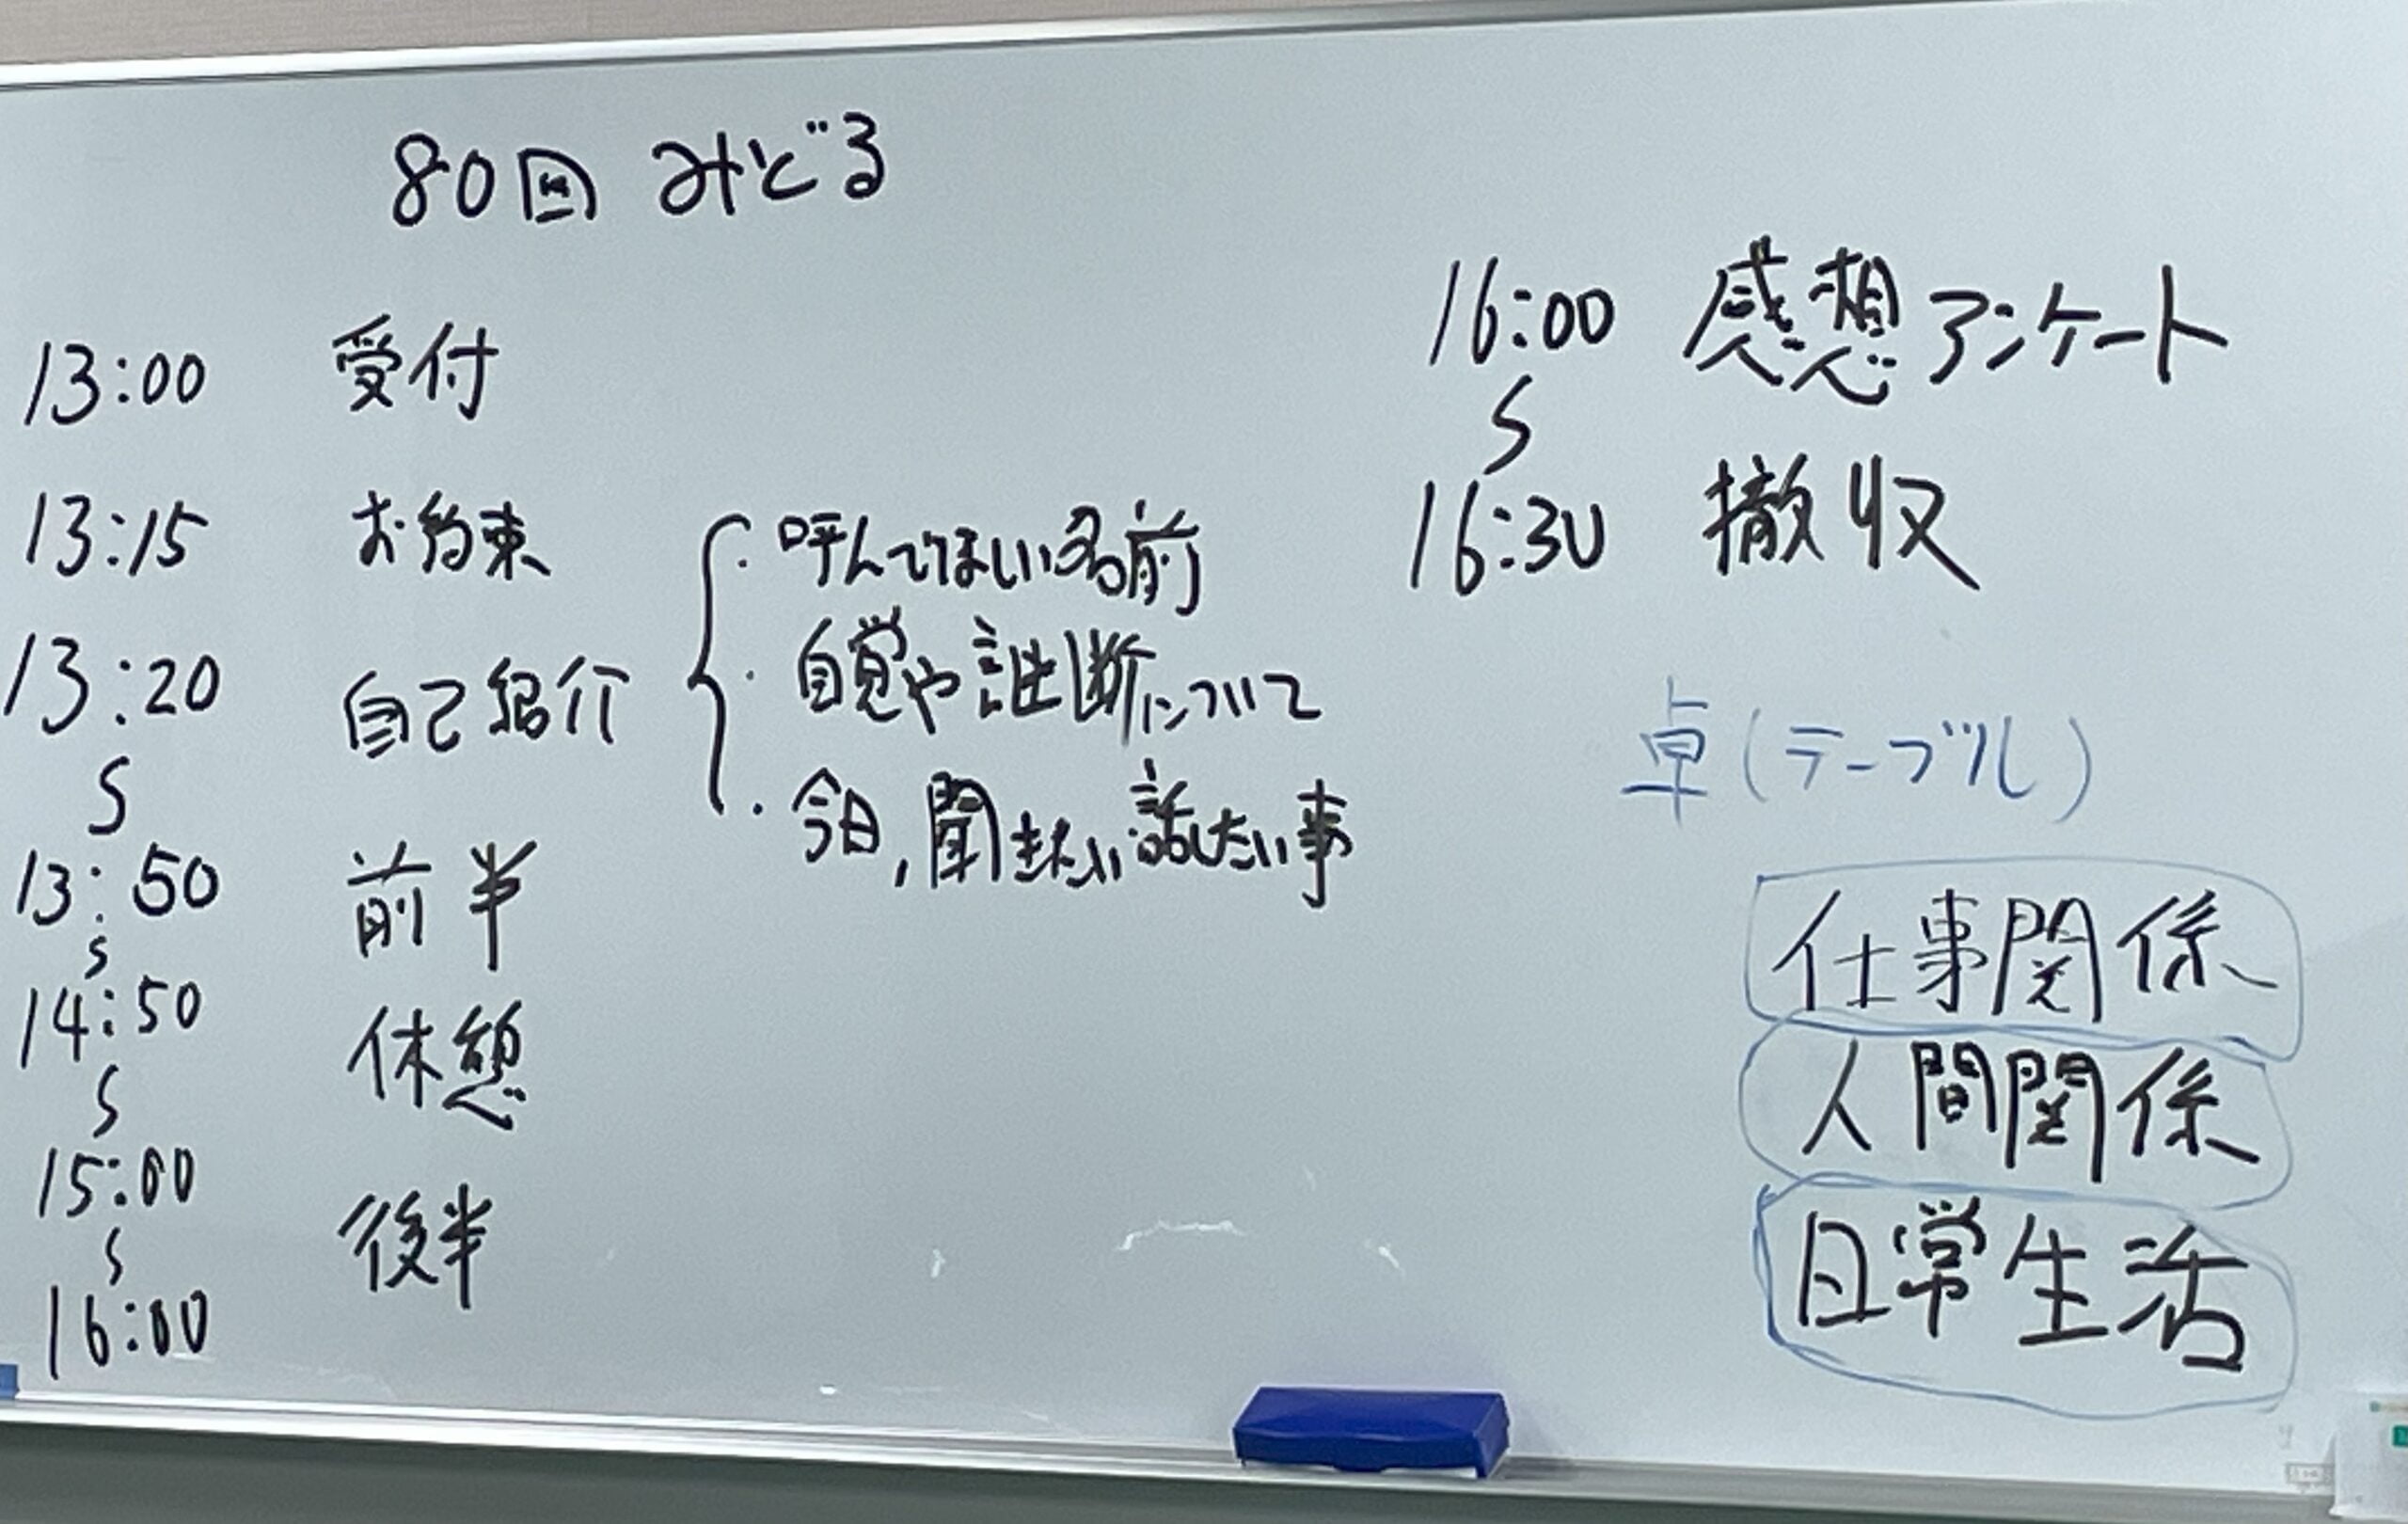 80回 みどる
13:00 受付
13:15 お約束
13:20 自己紹介
・呼んでほしい名前
・自覚や診断について
・今日,聞きたい話したい事
S
13:50 前半
S
14:50 休憩
S
15:00 後半
S
16:00
16:00 感想アンケート
S
16:30 撤収
卓(テーブル)
仕事関係
人間関係
日常生活